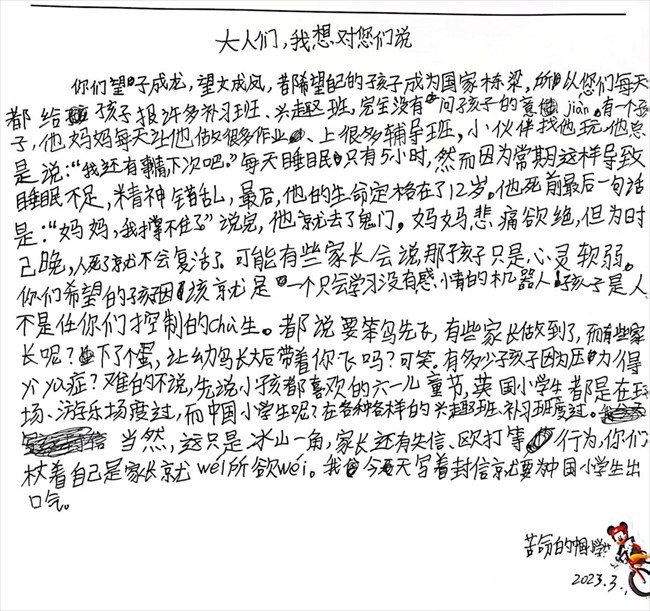 大人们，我想对您们说
你们望子成龙，望女成凤，都希望自己的孩子成为国家栋梁，所以从您们每天
都给孩子报许多补习班、兴趣班，完全没有问孩子的意jiàn。有个孩
子，他妈妈每天让他做很多作业、上很多辅导班，小伙伴找他玩，他总
是说：“我还有事情下次吧。”每天睡眠只有5小时，然而因为常期这样导致
睡眠不足，精神错乱，最后，他的生命定格在了12岁。他死前最后一句话
是：“妈妈，我撑不住了”说完，他就去了鬼门。妈妈悲痛欲绝，但为时
已晚，人死了就不会复活了。可能有些家长会说那孩子只是心灵软弱。
你们希望的孩因该就是一个只会学习没有感情的机器人孩子是人
不是任你们控制的chù生。都说要笨鸟先飞，有些家长做到了，而有些家
长呢？下了个蛋，让幼鸟长大后带着你飞吗？可笑。有多少孩子因为压力得
yì yù症？难的不说，先说小孩都喜欢的六一儿童节，英国小学生都是在玩
场、游乐场度过，而中国小学生呢？在各种各样的兴趣班、补习班度过。
当然，这只是冰山一角，家长还有失信、欧打等行为，你们
杖着自己是家长就wéi所欲wéi。我今天写着封信就要为中国小学生出
口气。
苦命的中国小学
2023.3.